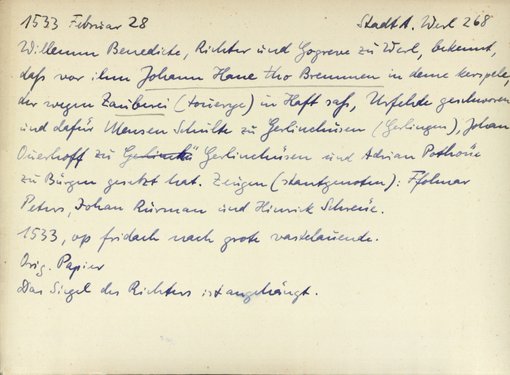 1533 Februar 28 StadtA. Werl 268
Willemm Benedicte, Richter und Gogreve zu Werl, bekennt,
daß vor ihm Johann Hane tho Bremmen in deme kerspele,
der wegen Zauberei (toverye) in Haft saß, Urfehde geschworen
und dafür Schulte zu Gerlinchusen (Gerlingen), Johan
Overhoff zu Gerlinchusen und Adrian Potthoue
zu Bürgen gesetzt hat. Zeugen (stantgenoten): Ffolmar
Peters, Johan Rurman und Hinrick
1533, op fridach nach grote vastelavende.
Orig. Papier
Das Siegel des Richters ist angehängt.